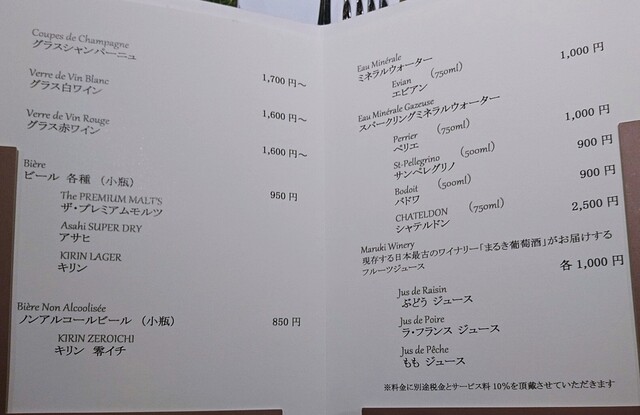 Coupes de Champagne
グラスシャンパーニュ
1,700 円～
Verre de Vin Blanc
グラス白ワイン
1,600 円～
Verre de Vin Rouge
グラス赤ワイン
1,600 円～
Bière
ビール 各種 （小瓶）
950 円
The PREMIUM MALT'S
ザ・プレミアムモルツ
Asahi SUPER DRY
アサヒ
KIRIN LAGER
キリン
Bière Non Alcoolisée
ノンアルコールビール （小瓶）
850 円
KIRIN ZEROICHI
キリン 零イチ
Eau Minérale
ミネラルウォーター
1,000 円
Evian （750ml）
エビアン
Eau Minérale Gazeuse
スパークリングミネラルウォーター
Perrier （750ml）
ペリエ
1,000 円
St-Pellegrino （500ml）
サンペレグリノ
900 円
Bodoit （500ml）
バドワ
900 円
CHATELDON （750ml）
シャテルドン
2,500 円
Maruki Winery
現存する日本最古のワイナリー「まるき葡萄酒」がお届けする
フルーツジュース
各 1,000 円
Jus de Raisin
ぶどう ジュース
Jus de Poire
ラ・フランス ジュース
Jus de Pêche
もも ジュース
※料金に別途税金とサービス料 10%を頂戴させていただきます